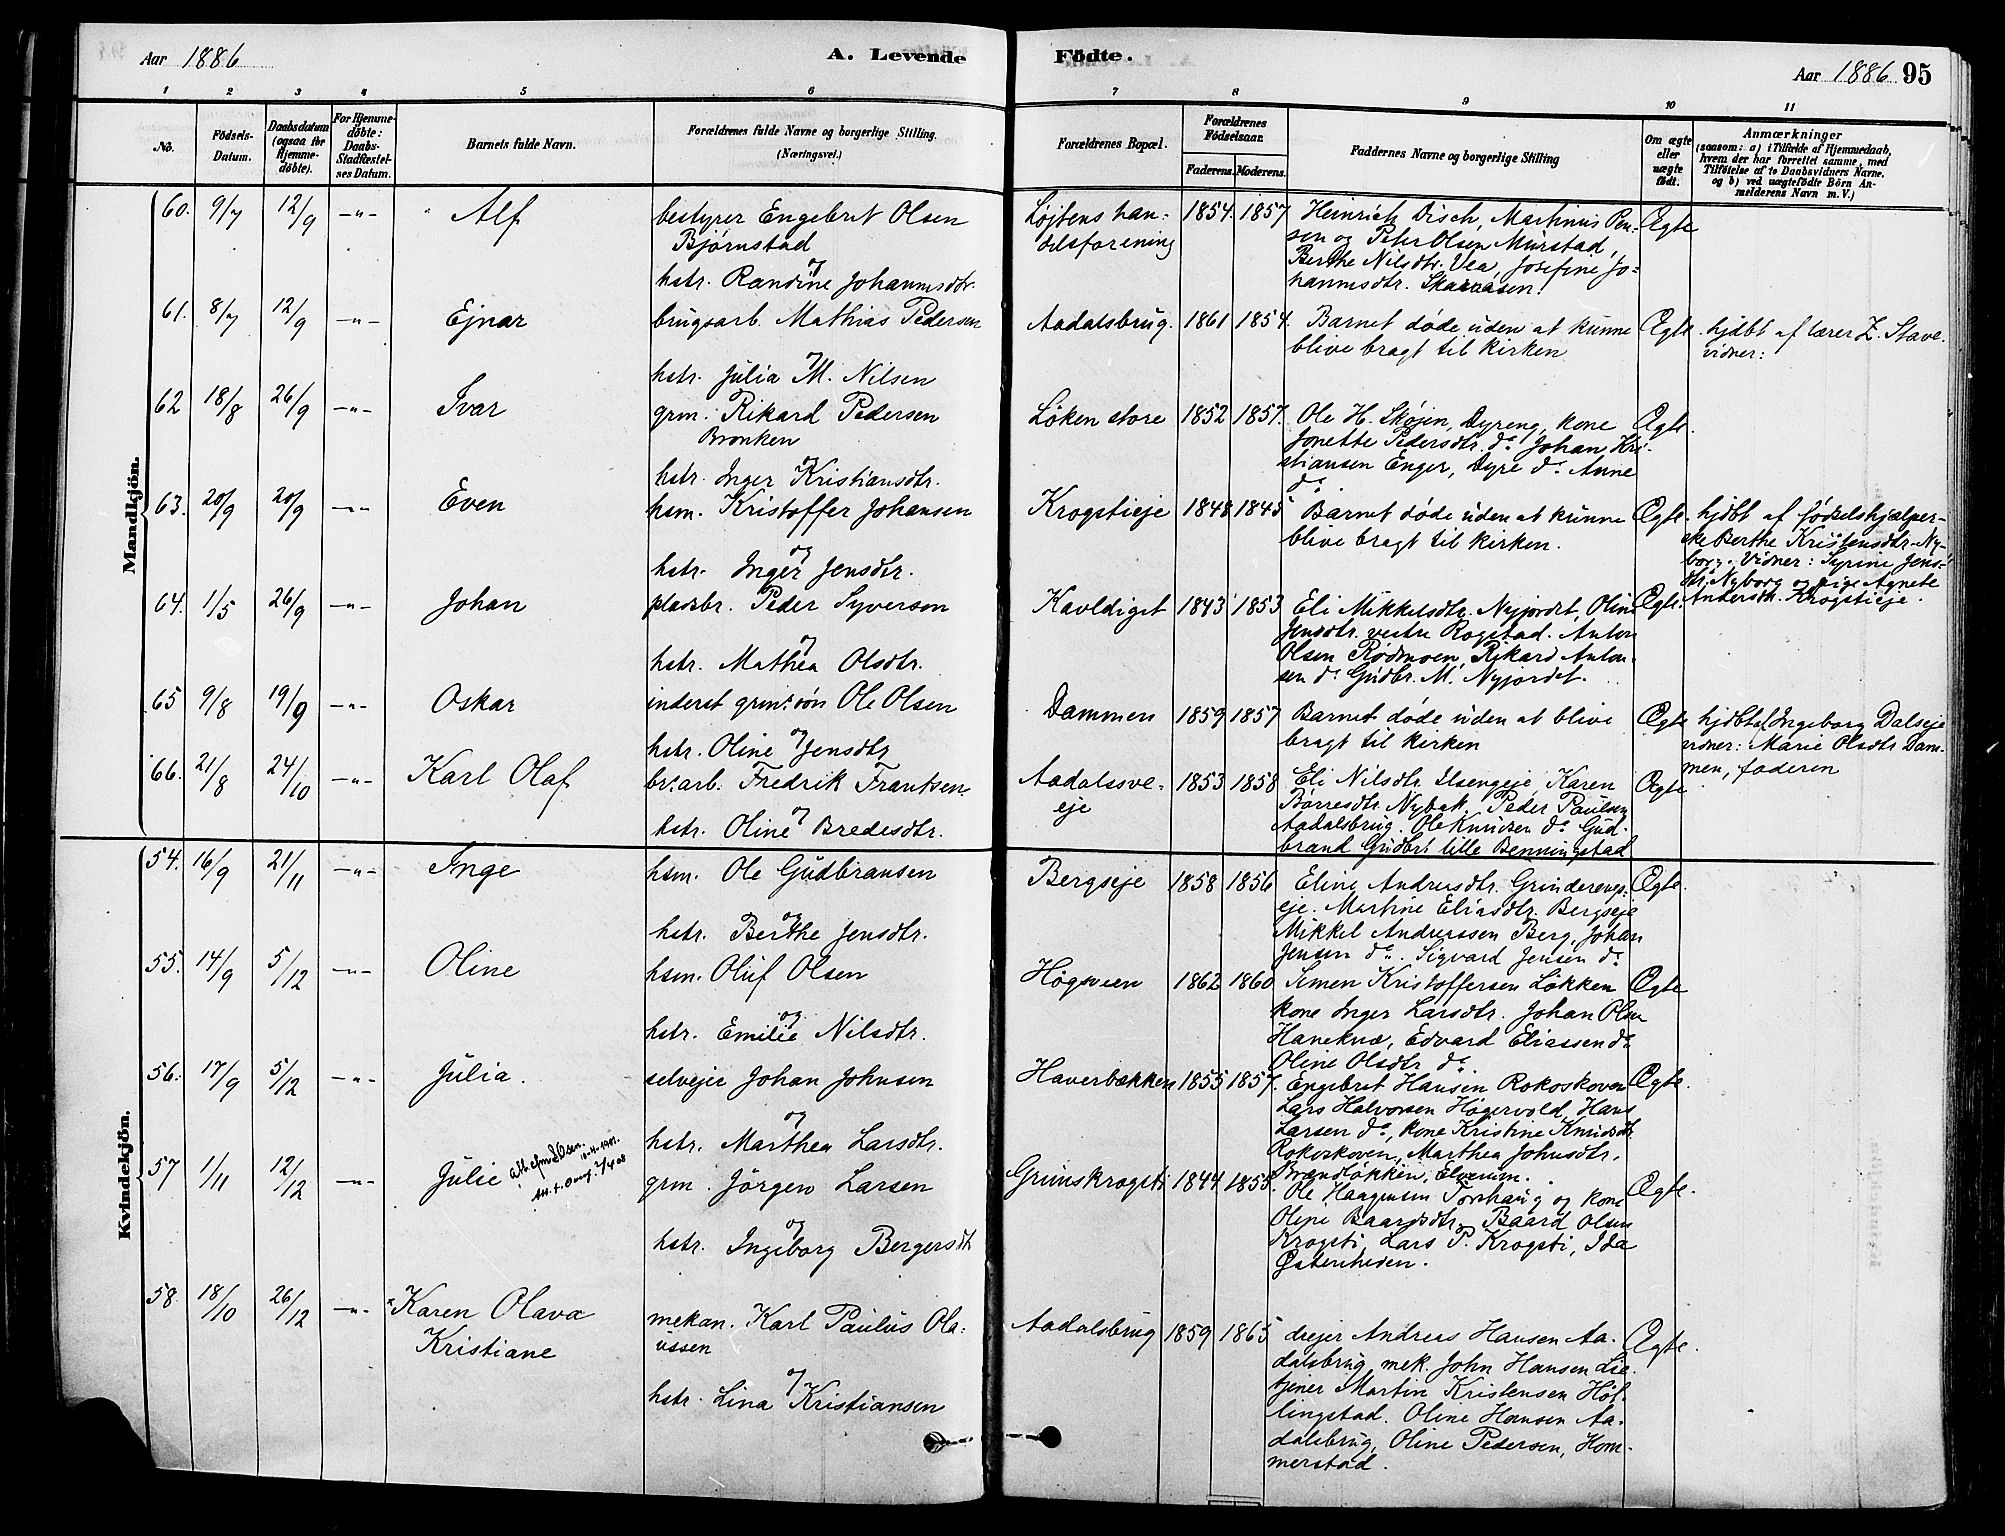 Aar 1886 A. Levende Fødte. Aar 1886 95
1 2 3 4 5 6 7 8 9 10 11
No. Fødsels-Datum. Daabsdatum (ogsaa for Hjemmedøbte). For Hjemmedøbte: Daabs-Stadfæstelses Datum. Barnets fulde Navn. Forældrenes fulde Navne og borgerlige Stilling. (Næringsvei.) Forældrenes Bopæl. Forældrenes Fødselsaar. Faderens. Moderens. Faddernes Navne og borgerlige Stilling Om ægte eller uægte født. Anmærkninger (saasom: a) i Tilfælde af Hjemmedaab, hvem der har forrettet samme, med Tilføielse af to Daabsvidners Navne, og b) ved uægtefødte Børn Anmelderens Navn m. V.)
Mandkjön.
60. 9/7 12/9 -"- Alf bestyrer Engebret Olsen Løjtens han- 1854. 1857. Heinrich Disch, Martinius Pen- Ægte
Bjørnstad delsforening sen og Peter Olsen Murstad,
og Berthe Nilsdtr. Vea, Josefine Jo-
hstr. Randine Johannsdtr. hannsdtr. Skaraasen.
61. 8/7 12/9 -"- Ejnar brugsarb. Mathias Pedersen Aadalsbrug. 1861 1854. Barnet døde uden at kunne Ægte. hjdbt af lærer Z. Stave.
blive bragt til kirken vidner:
og
hstr. Julia M. Nilsen
62 18/8 26/9 -"- Ivar grm. Rikard Pedersen Løken store 1852 1857. Ole H. Skøjen, Dyreng, kone Ægte.
Bronken Jonette Pedersdtr. do. Johan Kri-
og stiansen Enger, Dyre do. Anne
hstr. Inger Kristiansdtr. do.
63. 20/9 20/9 -"- Even hsm. Kristoffer Johansen Krogstieje 1848 1845 Barnet døde uden at kunne Ægte. hjdbt af fødselshjælper-
blive bragt til kirken. ske Berthe Kristensdtr. Ny-
og borg. Vidner: Syrine Jens-
hstr. Inger Jensdtr. dtr. Nyborg og pige Agnete
64. 1/5 26/9 -"- Johan pladsbr. Peder Syversen Kavldiget 1843 1853 Eli Mikkelsdtr. Nyjordet, Oline Ægte. Andersdtr. Krogstieje.
Jensdtr. vestre Rogstad. Anton
og Olsen Rødmoen, Rikard Anton-
hstr. Mathea Olsdtr. sen do. Gudbr. M. Nyjordet.
65 9/8 19/9 -"- Oskar inderst grm:søn Ole Olsen Dammen 1859 1857 Barnet døde uden at blive Ægte hjdbt af Ingeborg Dalseje
og bragt til kirken vidner: Marie Olsdtr Dam-
hstr. Oline Jensdtr men, faderen
66. 21/8 24/10 -"- Karl Olaf br.arb. Fredrik Frantsen. Aadalsve- 1853 1858 Eli Nilsdtr. Ilsengeje, Karen Ægte
eje Børresdtr. Nybak. Peder Paulsen
og Aadalsbrug. Ole Knudsen do. Gud-
hstr. Oline Bredesdtr. brand Gudbr. lille Benningstad
Kvindekjön.
54. 16/9 21/11 -"- Inge hsm. Ole Gudbransen Bergseje 1858 1856 Eline Andreasdtr. Grinderengs- Ægte.
eje. Martine Eliasdtr. Bergseje
og Mikkel Andreassen Berg, Johan
hstr. Berthe Jensdtr. Jensen do. Sigvard Jensen do.
55. 14/9 5/12 -"- Oline hsm. Oluf Olsen Høgsveen 1862 1860 Simen Kristoffersen Løkken Ægte
kone Inger Larsdtr. Johan Olsen
og Haneknæ, Edvard Eliassen do.
hstr. Emilie Nilsdtr. Oline Olsdtr do.
56. 17/9 5/12 -"- Julia. selvejer Johan Johnsen Haverbækken 1855 1857. Engebret Hansen Rokoskoven Ægte.
Lars Halvorsen Høgervold, Hans
og Larsen do., kone Kristine Knudsdtr.
hstr. Marthea Larsdtr. Rokoskoven, Marthea Johnsdtr.
Brændløkken, Elverum.
57 1/11 12/12 -"- Julie grm. Jörgen Larsen Grimskrogsti 1844 1855. Ole Haagensen Torshaug og kone Ægte.
Oline Baardsdtr., Baard Olsen
og Krogsti, Lars P. Krogsti, Ida
hstr. Ingeborg Bergersdtr Østenheden.
58. 18/10 26/12 -"- Karen Olava mekan. Karl Paulus Ola- Aadalsbrug 1859 1865 drejer Andreas Hansen Aa- Ægte.
Kristiane ussen dalsbrug, mek. John Hansen Lie
og tjener Martin Kristensen Høl-
hstr. Lina Kristiansen lingstad. Oline Hansen Aa-
dalsbrug, Oline Pedersen, Hom-
merstad.